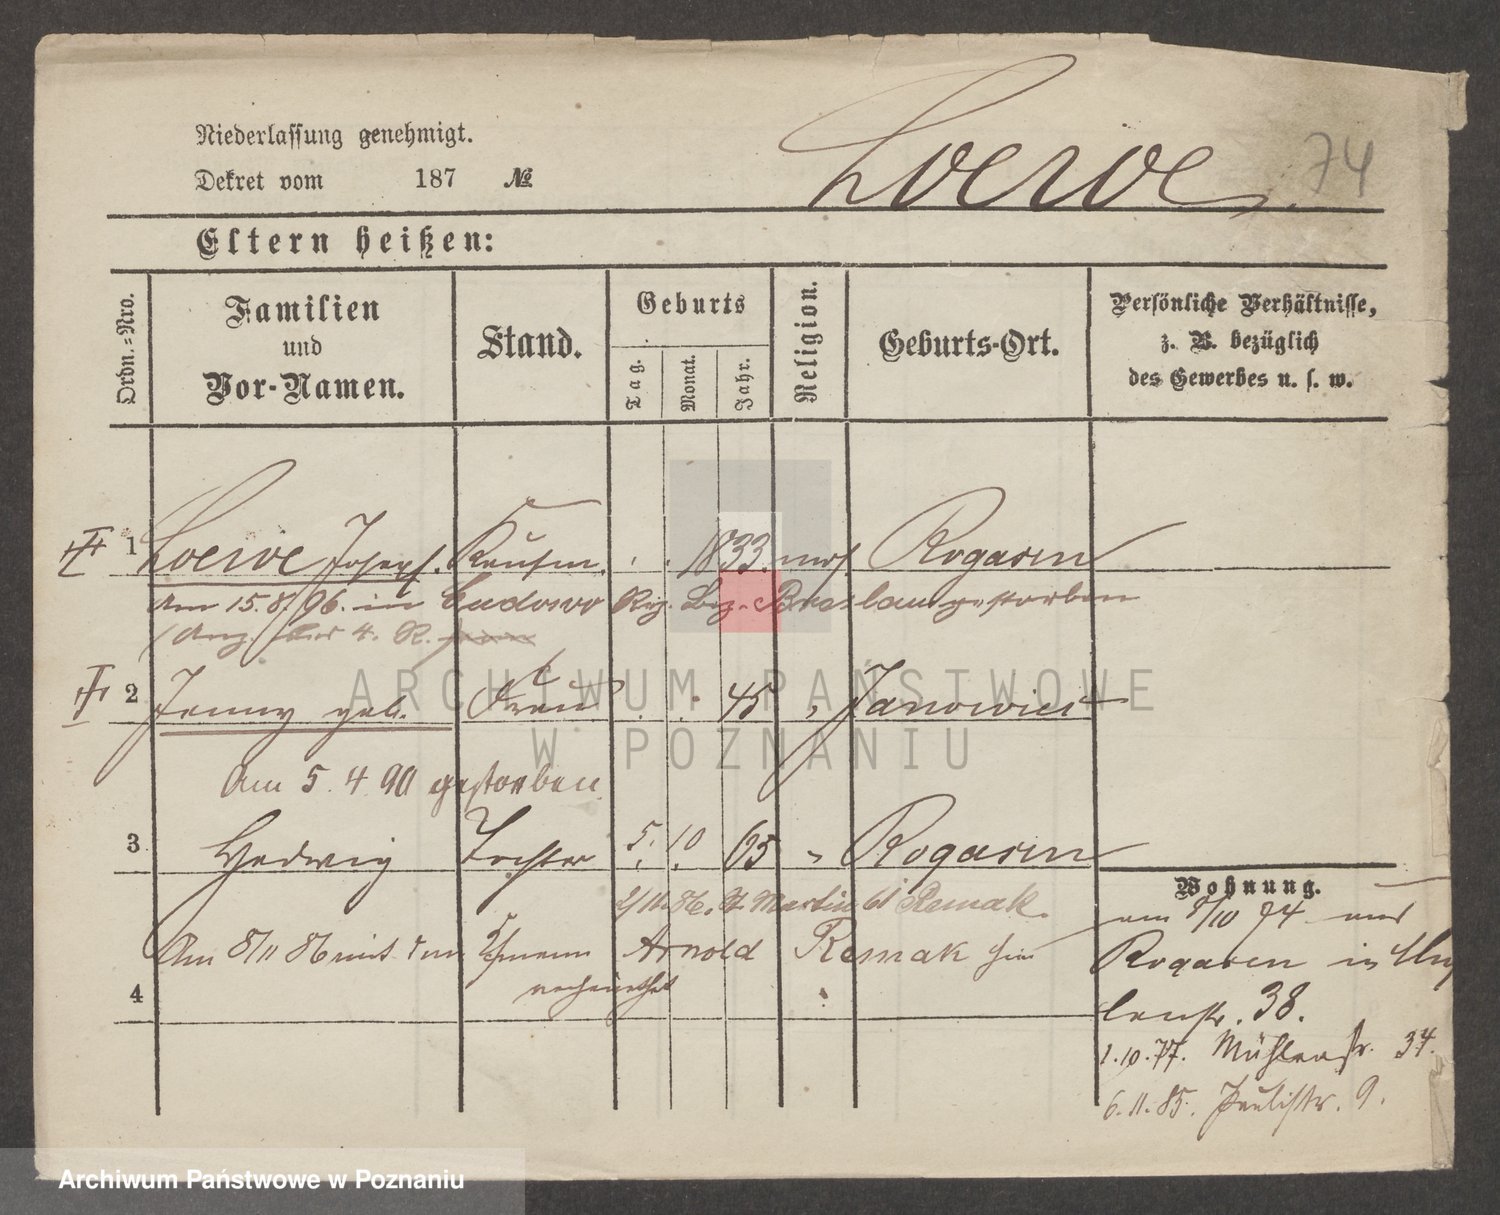 Niederlassung genehmigt.
Dekret vom 187 №
Loewe 74
Eltern heißen:
Ordn.-Nro.
Familien
und
Vor-Namen.
Stand.
Geburts
Tag.
Monat.
Jahr.
Religion.
Geburts-Ort.
Persönliche Verhältnisse,
z. B. bezüglich
des Gewerbes u. s. w.
1 Loewe Joseph. Kaufm. 1833. mos. Rogasen
Am 15.8. 96. in Cudowo Rg. Bez. Breslau gestorben
2 Jenny geb. Frau 45 " Janowiec
Am 5. 4 90 gestorben
3 Hedwig Tochter 5. 10. 65 " Rogasen
Wohnung.
2/11. 86. St. Martin 61 Remak.
am 8/10 74 aus
Am 8/11 86 mit dem Ehmann Arnold Remak hier
Rogasen in
verheirathet
4
38.
1.10.77. Mühlenstr. 34.
6.11.85. Paulistr. 9.
ARCHIWUM PAŃSTWOWE
W POZNANIU
Archiwum Państwowe w Poznaniu